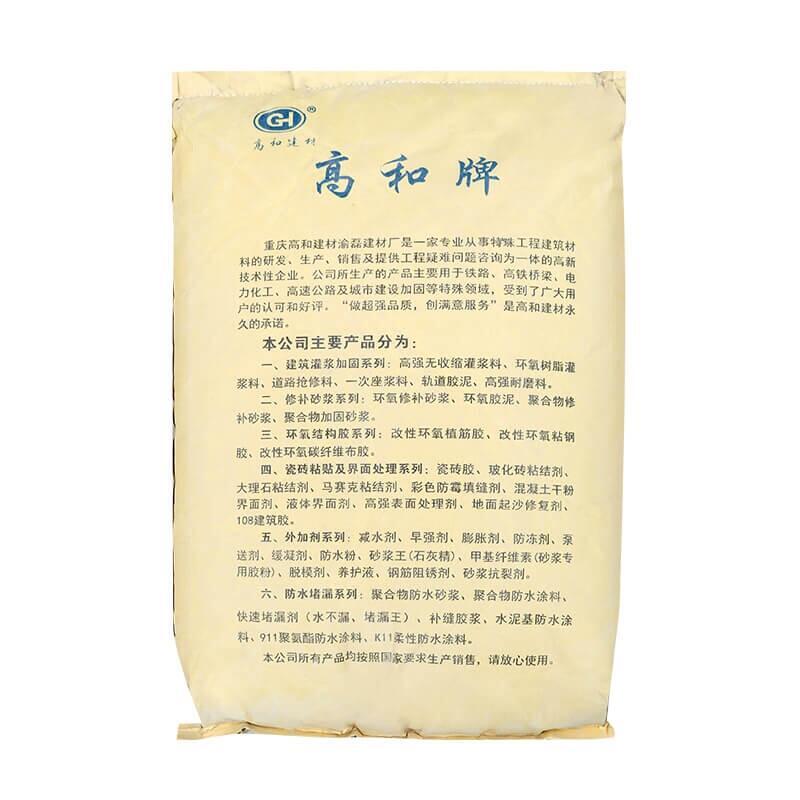 GH®
高和建材
高和牌
重庆高和建材渝磊建材厂是一家专业从事特殊工程建筑材
料的研发、生产、销售及提供工程疑难问题咨询为一体的高新
技术性企业。公司所生产的产品主要用于铁路、高铁桥梁、电
力化工、高速公路及城市建设加固等特殊领域，受到了广大用
户的认可和好评。“做超强品质，创满意服务”是高和建材永
久的承诺。
本公司主要产品分为：
一、建筑灌浆加固系列：高强无收缩灌浆料、环氧树脂灌
浆料、道路抢修料、一次座浆料、轨道胶泥、高强耐磨料。
二、修补砂浆系列：环氧修补砂浆、环氧胶泥、聚合物修
补砂浆、聚合物加固砂浆。
三、环氧结构胶系列：改性环氧植筋胶、改性环氧粘钢
胶、改性环氧碳纤维布胶。
四、瓷砖粘贴及界面处理系列：瓷砖胶、玻化砖粘结剂、
大理石粘结剂、马赛克粘结剂、彩色防霉填缝剂、混凝土干粉
界面剂、液体界面剂、高强表面处理剂、地面起沙修复剂、
108建筑胶。
五、外加剂系列：减水剂、早强剂、膨胀剂、防冻剂、泵
送剂、缓凝剂、防水粉、砂浆王(石灰精)、甲基纤维素(砂浆专
用胶粉)、脱模剂、养护液、钢筋阻锈剂、砂浆抗裂剂。
六、防水堵漏系列：聚合物防水砂浆、聚合物防水涂料、
快速堵漏剂（水不漏、堵漏王）、补缝胶浆、水泥基防水涂
料、911聚氨酯防水涂料、K11柔性防水涂料。
本公司所有产品均按照国家要求生产销售，请放心使用。